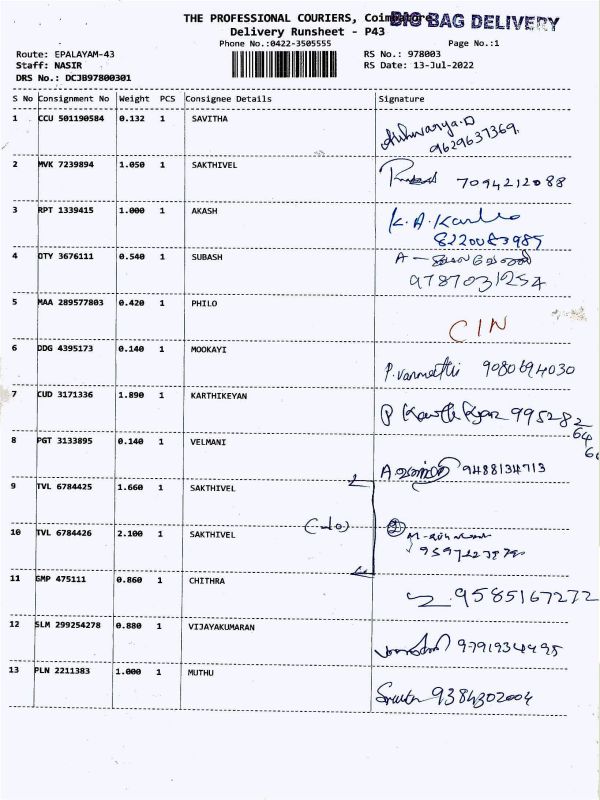 THE PROFESSIONAL COURIERS, Coimbatore
BIG BAG DELIVERY
Delivery Runsheet - P43
Phone No.:0422-3505555 Page No.:1
Route: EPALAYAM-43 RS No.: 978003
Staff: NASIR RS Date: 13-Jul-2022
DRS No.: DCJB97800301
S No Consignment No Weight PCS Consignee Details Signature
1 CCU 501190584 0.132 1 SAVITHA
Aishwarya.D
9629637369.
2 MVK 7239894 1.050 1 SAKTHIVEL
7094212088
3 RPT 1339415 1.000 1 AKASH
K.A.
8220083985
4 OTY 3676111 0.540 1 SUBASH
A -
9787031254
5 MAA 289577803 0.420 1 PHILO
CIN
6 DDG 4395173 0.140 1 MOOKAYI
P. 9080694030
7 CUD 3171336 1.890 1 KARTHIKEYAN
P 995282
64
6
8 PGT 3133895 0.140 1 VELMANI
A 9488134713
9 TVL 6784425 1.660 1 SAKTHIVEL
10 TVL 6784426 2.100 1 SAKTHIVEL
②
11 GMP 475111 0.860 1 CHITHRA
9585167272
12 SLM 299254278 0.880 1 VIJAYAKUMARAN
9791934495
13 PLN 2211383 1.000 1 MUTHU
9384302004